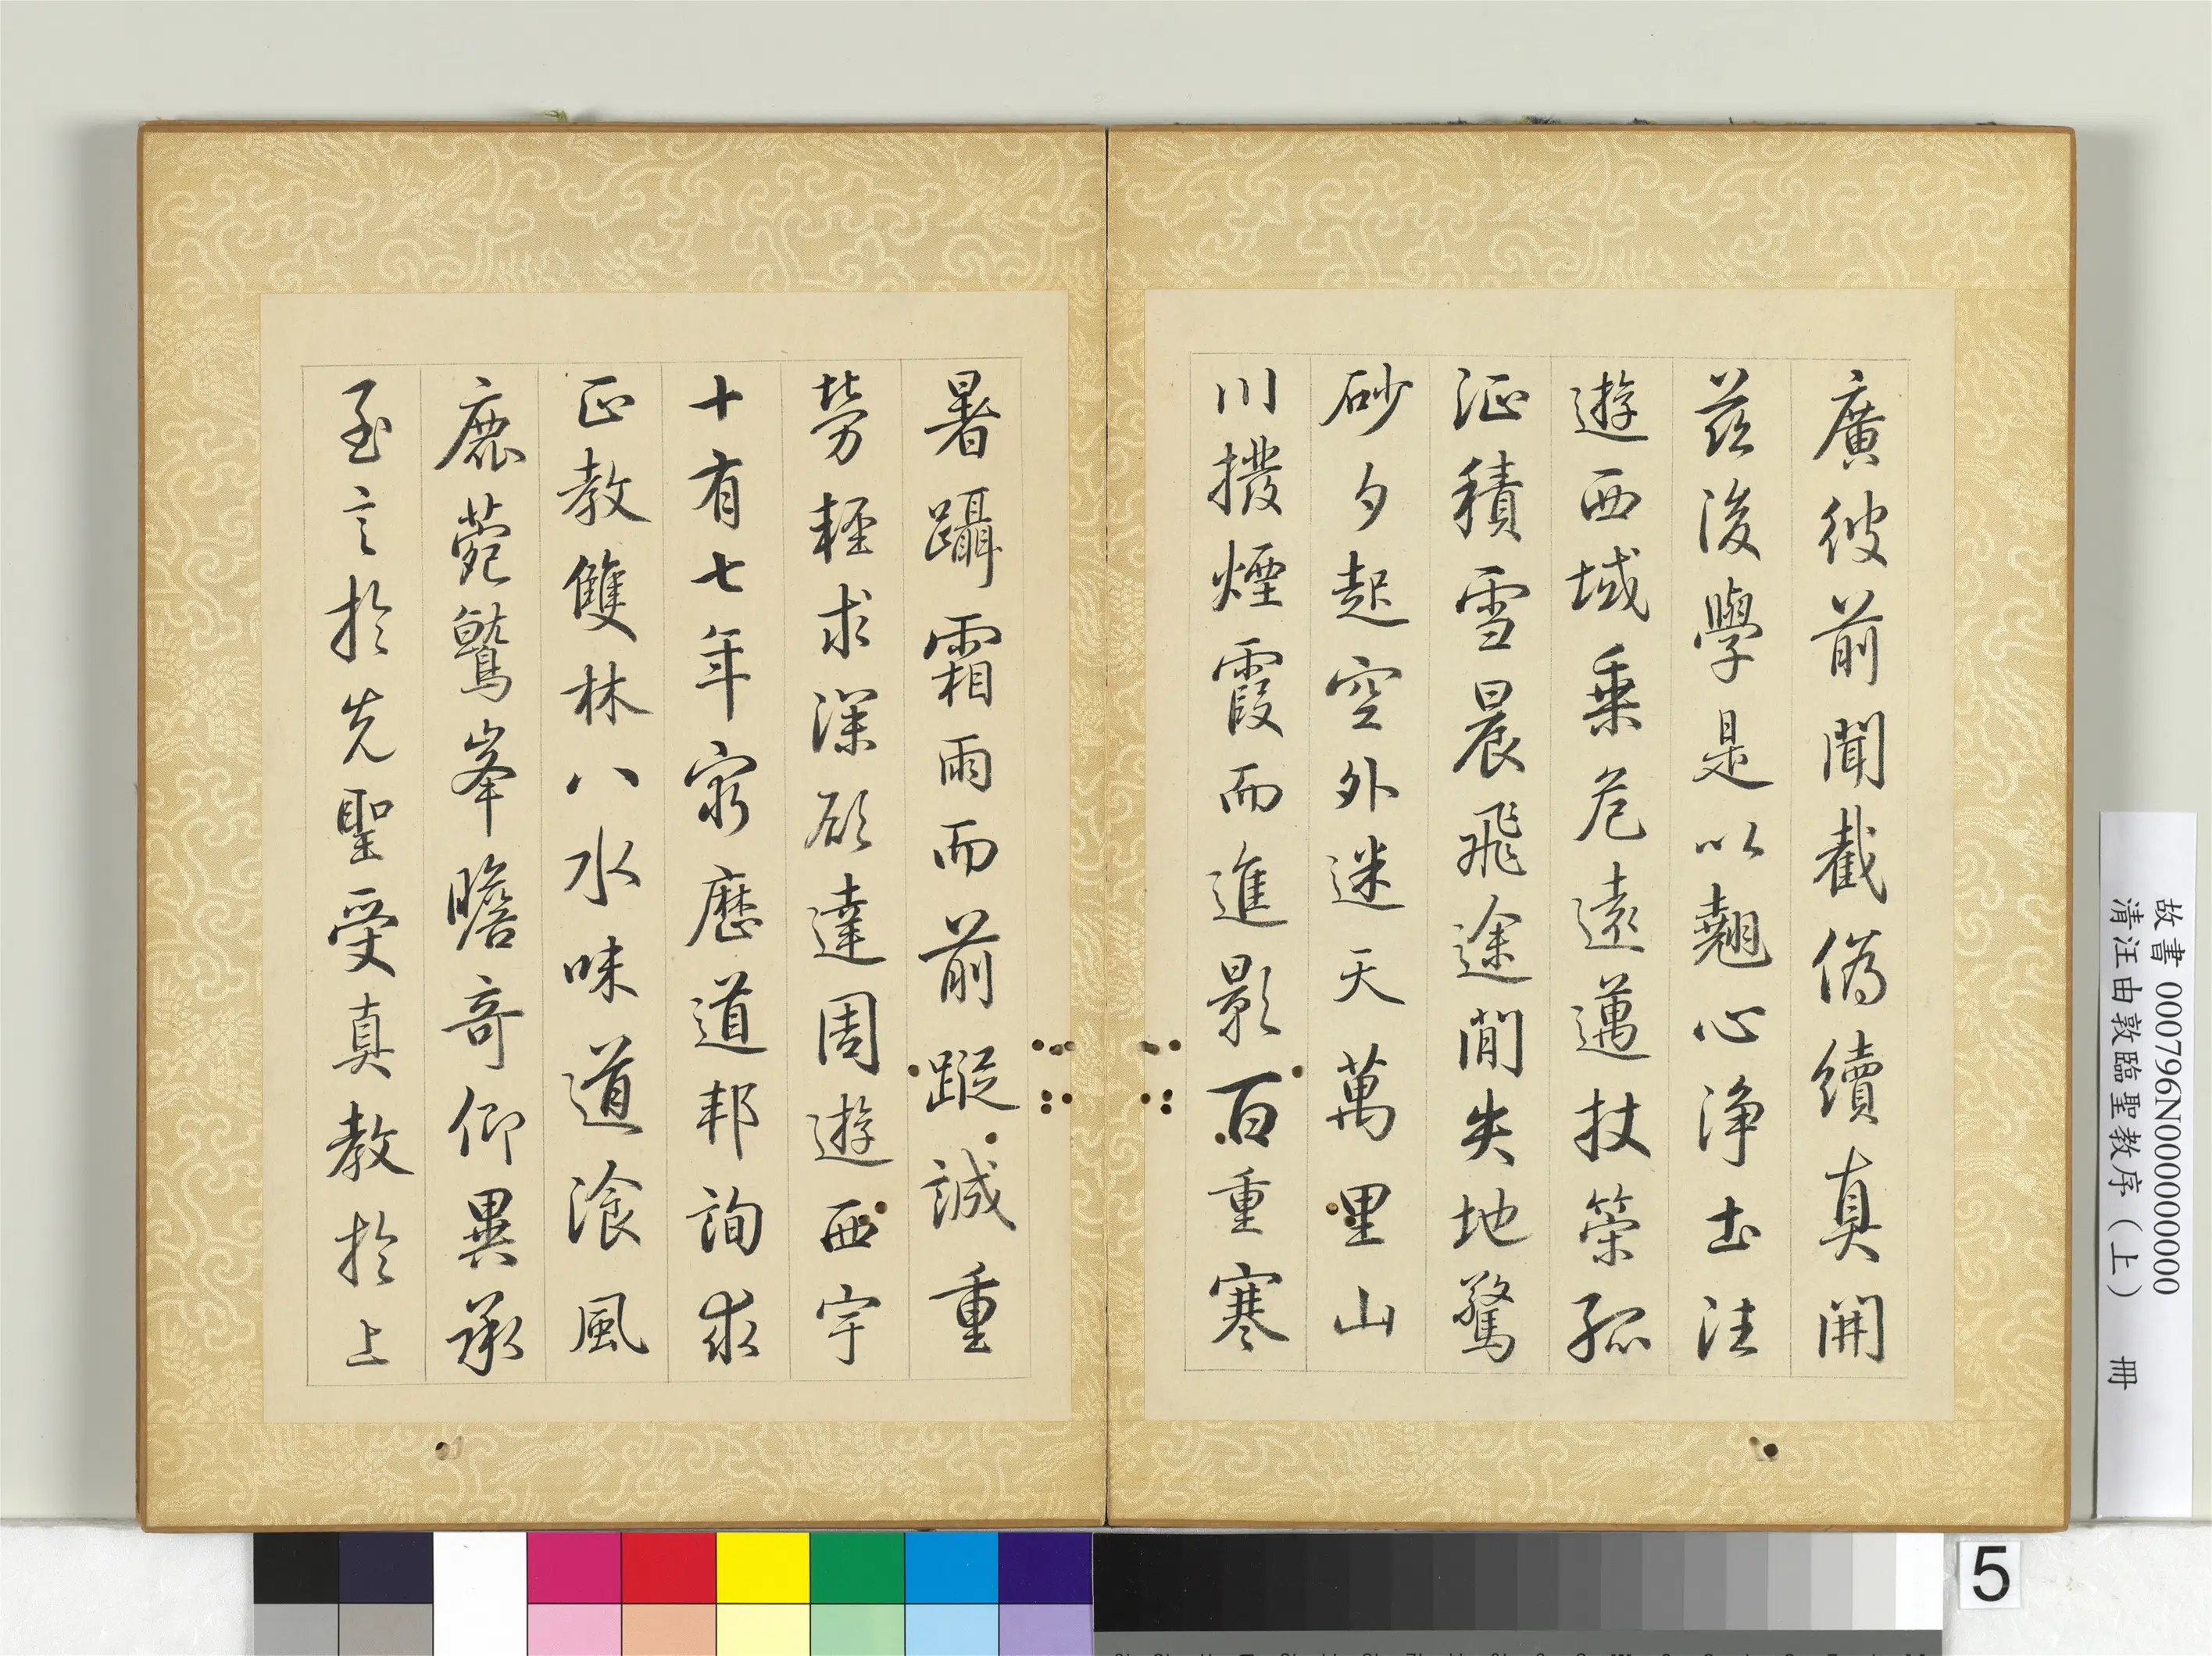 廣彼前聞截偽續真開
茲後學是以翹心淨土法
遊西域乗危遠邁杖策孤
征積雪晨飛途閒失地驚
砂夕起空外迷天萬里山
川撥煙霞而進影百重寒
暑躡霜雨而前蹤誠重
勞輕求深願達周遊西宇
十有七年窮歷道邦詢求
正教雙林八水味道飡風
鹿菀鷲峯瞻奇仰異承
至言於先聖受真教於上
故書 000796N000000000
清汪由敦臨聖教序（上） 冊
5